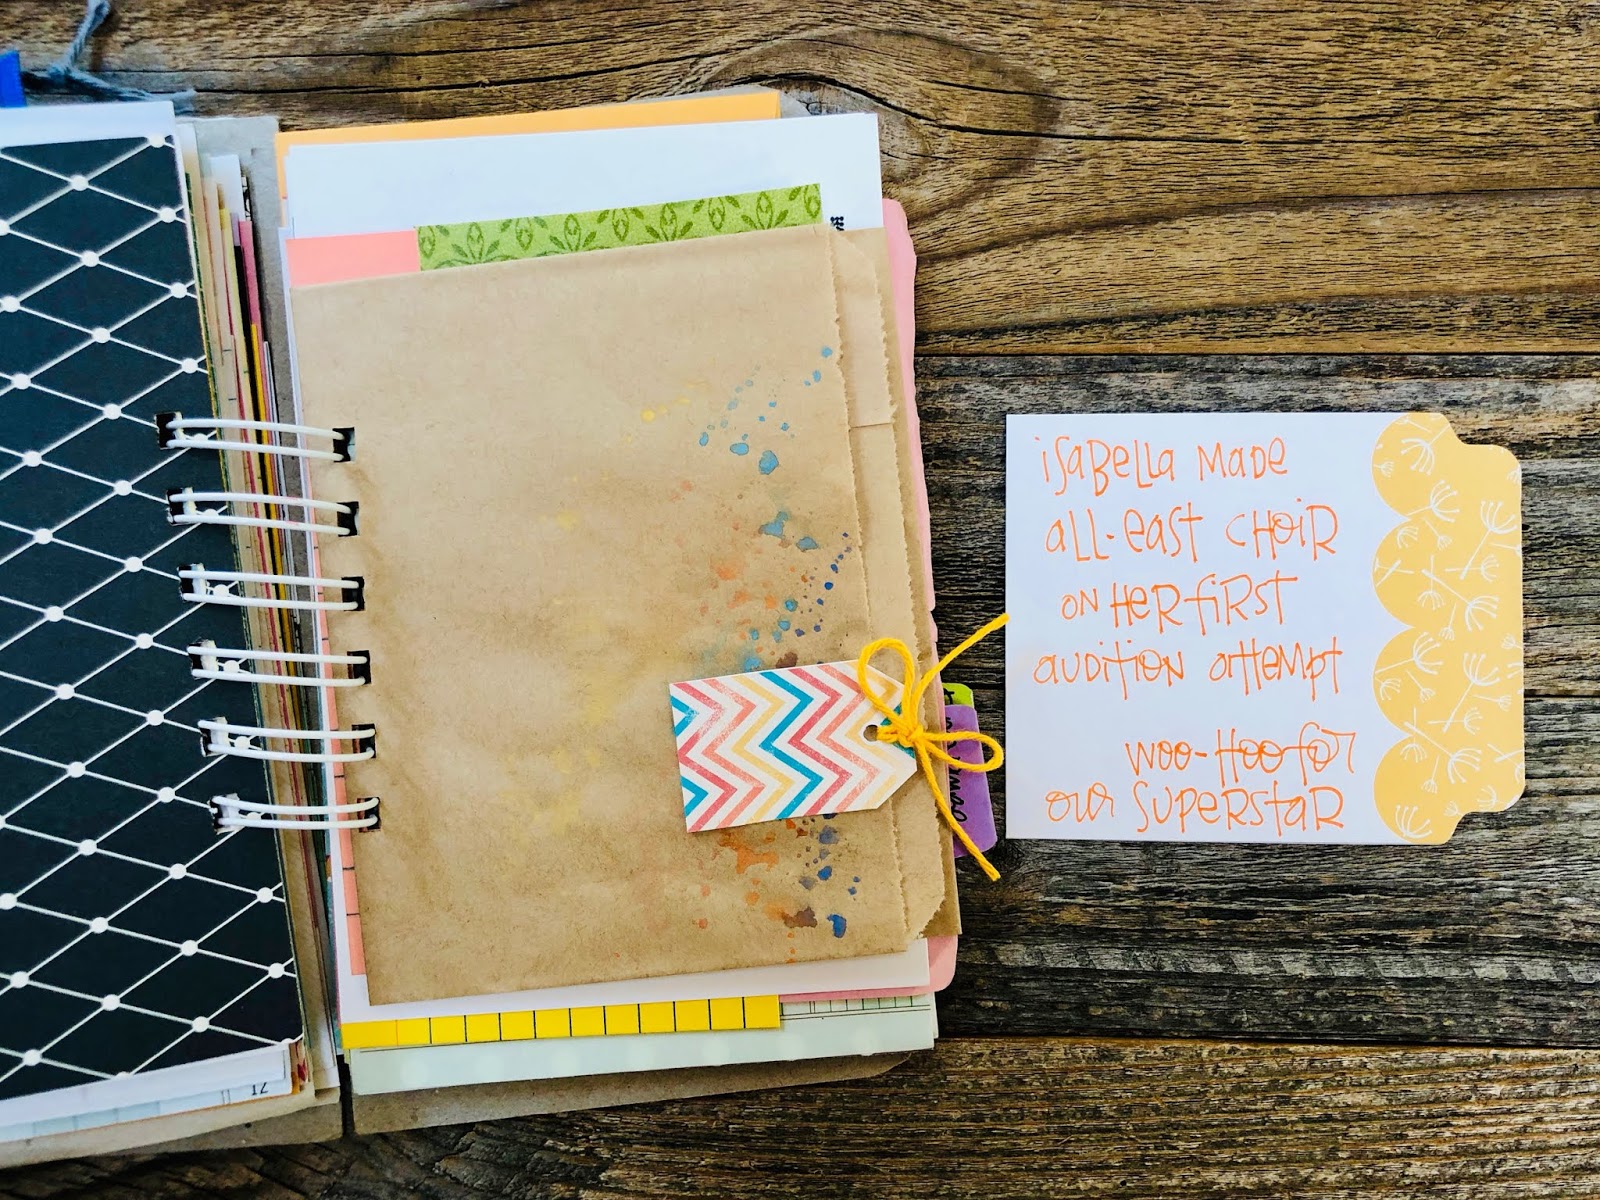 isabella made
all-east choir
on her first
audition attempt
woo-hoo for
our superstar
17